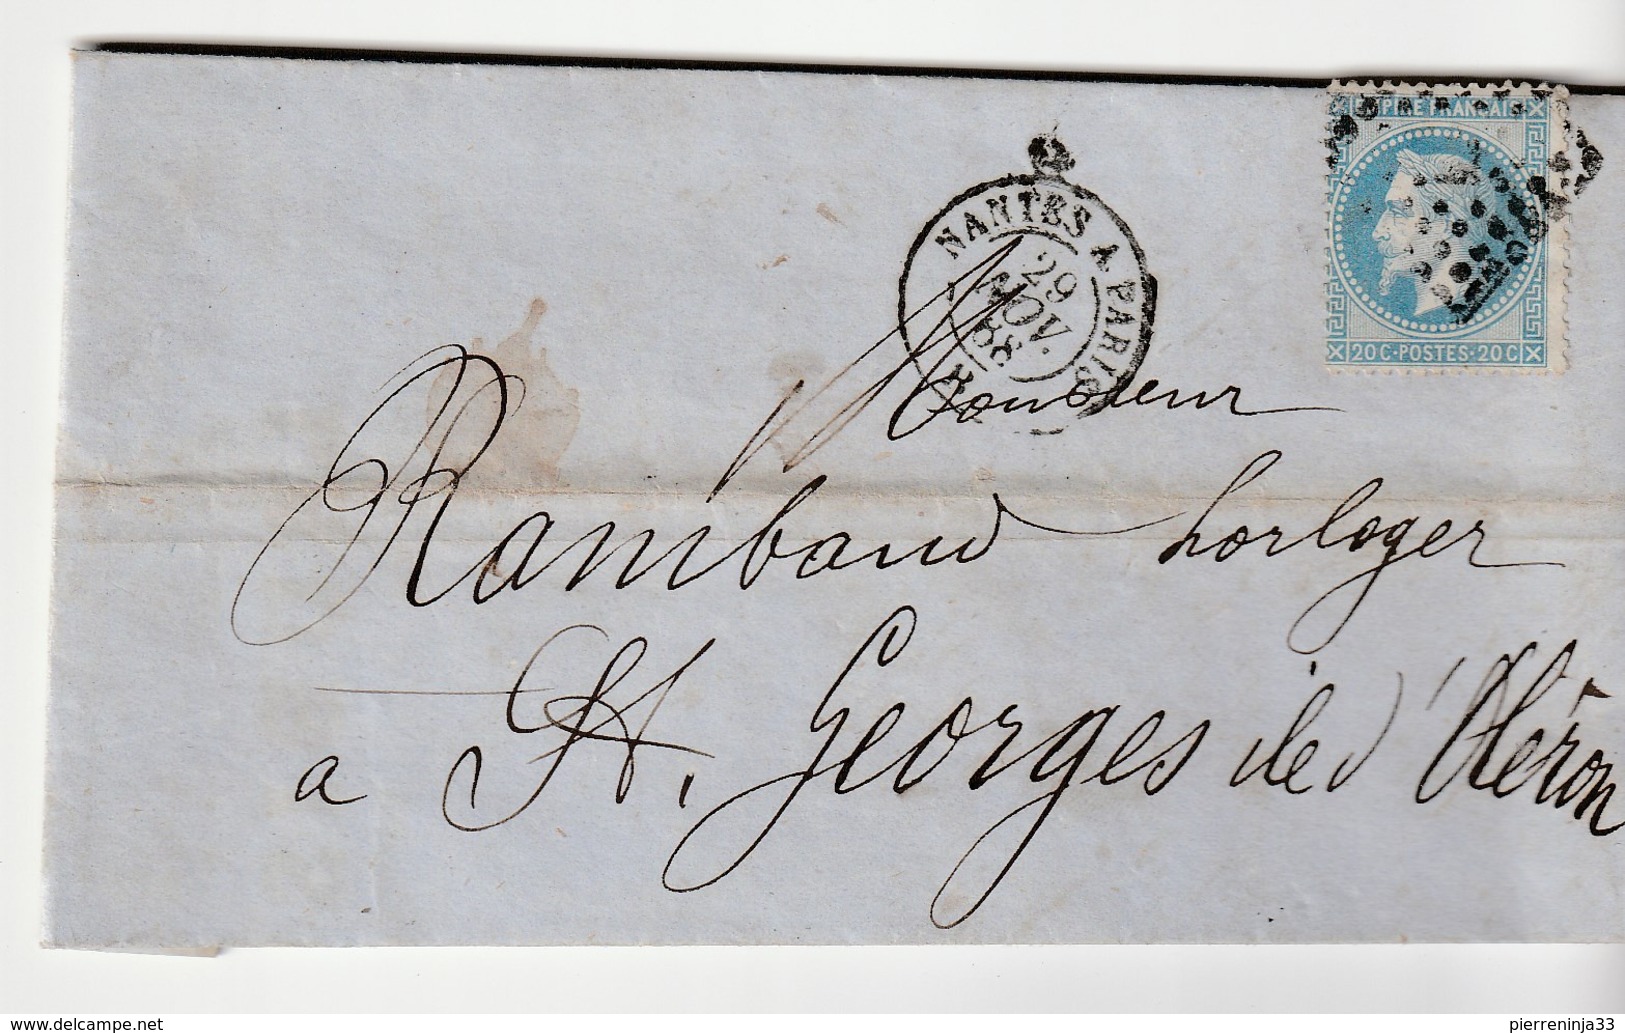 EMPIRE FRANÇAIS
20 C · POSTES · 20 C
NANTES A PARIS
29
NOV.
68
Monsieur
Rambaud horloger
a St. Georges ile d'Oléron
www.delcampe.net
pierreninja33